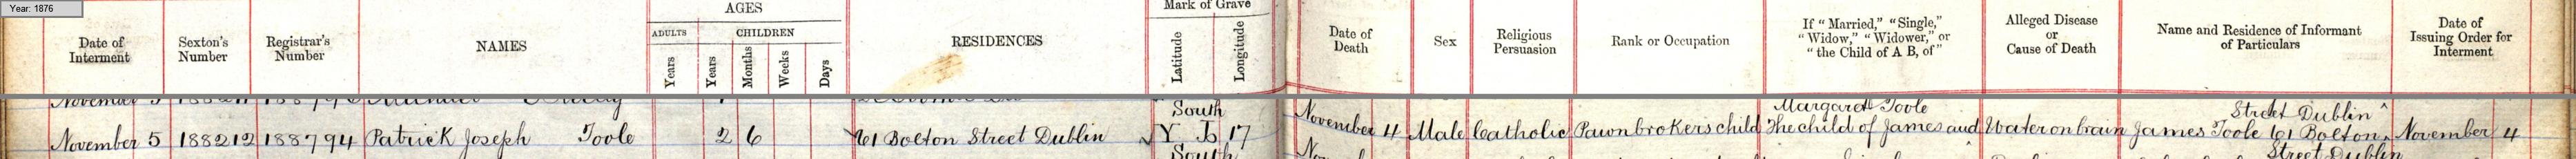 Year: 1876
Date of Interment
Sexton's Number
Registrar's Number
NAMES
AGES
ADULTS
CHILDREN
Years
Years
Months
Weeks
Days
RESIDENCES
Mark of Grave
Latitude
Longitude
Date of Death
Sex
Religious Persuasion
Rank or Occupation
If "Married," "Single," "Widow," "Widower," or "the Child of A B, of"
Alleged Disease or Cause of Death
Name and Residence of Informant of Particulars
Date of Issuing Order for Interment
November 5 188212 188794 Patrick Joseph Toole 2 6 61 Bolton Street Dublin
South
November 4 Male Catholic Pawnbrokers child
Margaret Toole
The child of James and
Water on brain
Street Dublin ^
James Toole 61 Bolton ^
November 4
South
Street Dublin